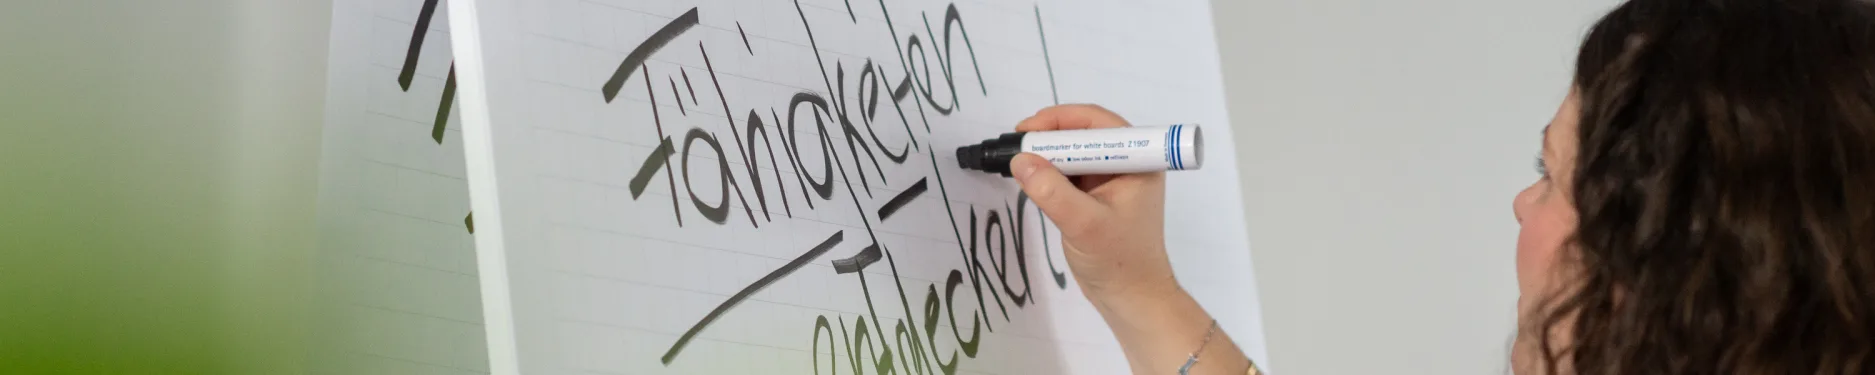 Fähigkeiten
entdecken
boardmarker for white boards Z1907
low odour ink